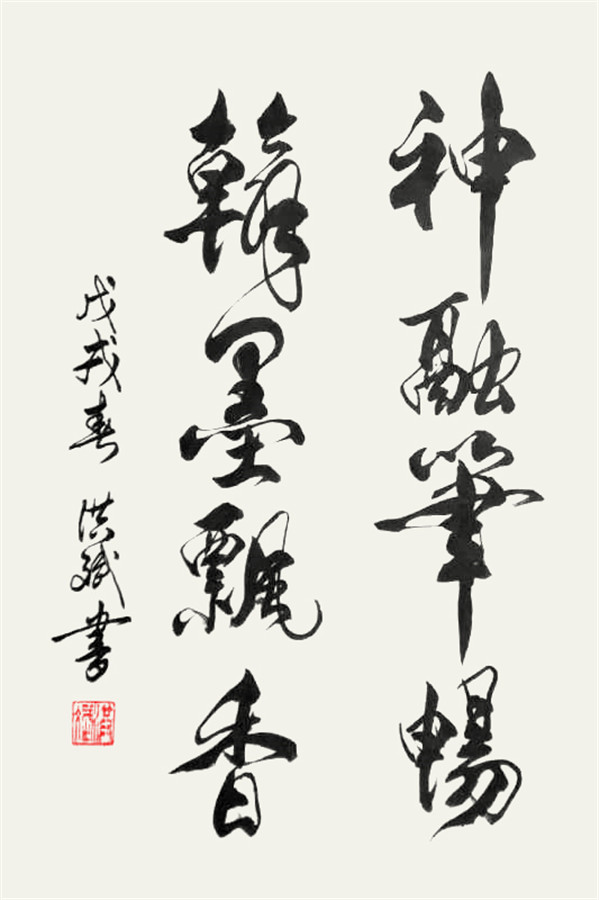 神融筆暢
翰墨飄香
戊戌春 洪斌書